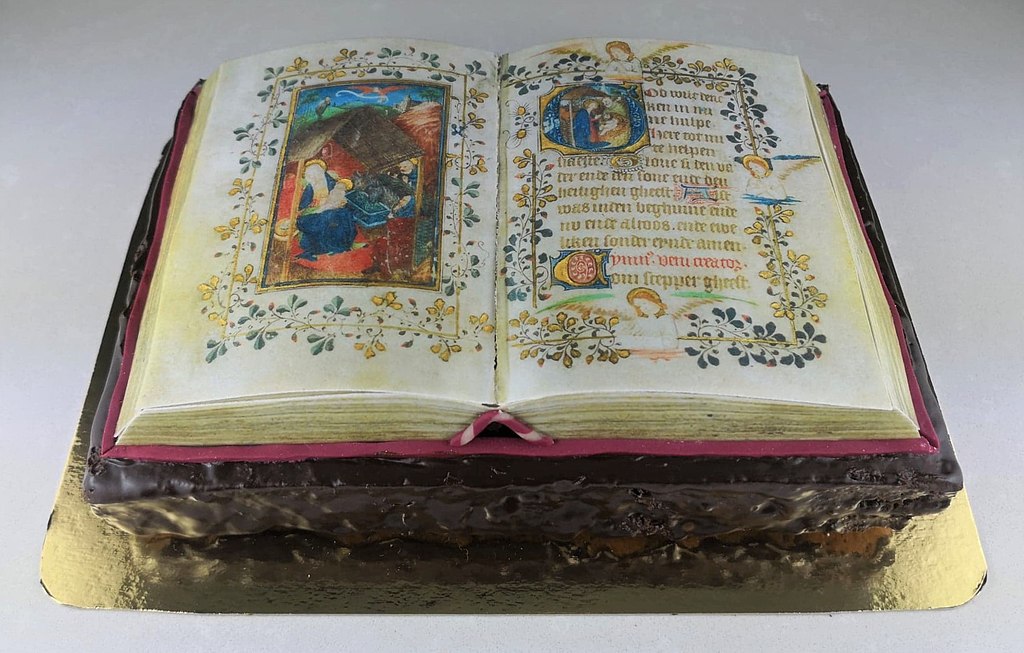 God wilt denc
ken in mi
ne hulpe
here tot mi
re helpen
haesten Glorie si den va
der ende den sone ende den
heilighen gheest. Alst
was inden beghinne ende
nv ende altoos. ende ewe
liken sonder eynde amen.
ymn⁹. veni creator.
Com scepper gheest.